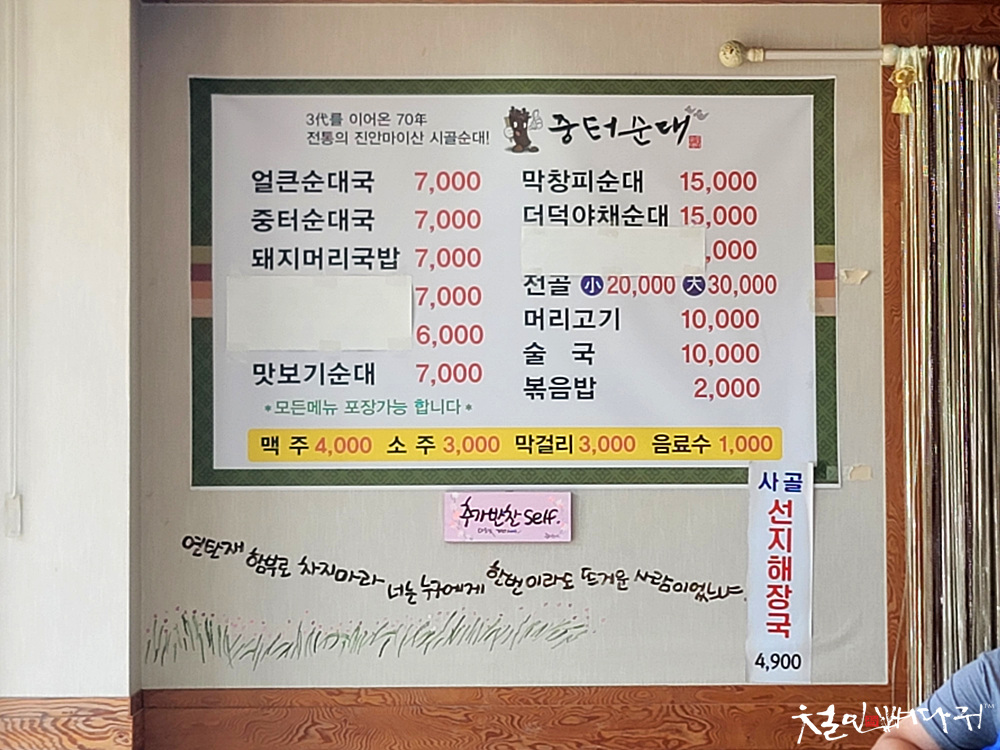 3代를 이어온 70年
전통의 진안마이산 시골순대!
중터순대
얼큰순대국 7,000
중터순대국 7,000
돼지머리국밥 7,000
7,000
6,000
맛보기순대 7,000
*모든메뉴 포장가능 합니다*
막창피순대 15,000
더덕야채순대 15,000
,000
전골 小 20,000 大 30,000
머리고기 10,000
술 국 10,000
볶음밥 2,000
맥 주 4,000 소 주 3,000 막걸리 3,000 음료수 1,000
추가반찬 self.
연탄재 함부로 차지마라 너는 누구에게 한번이라도 뜨거운 사람이었느냐.
사골
선지해장국
4,900
철민빠다뤼™